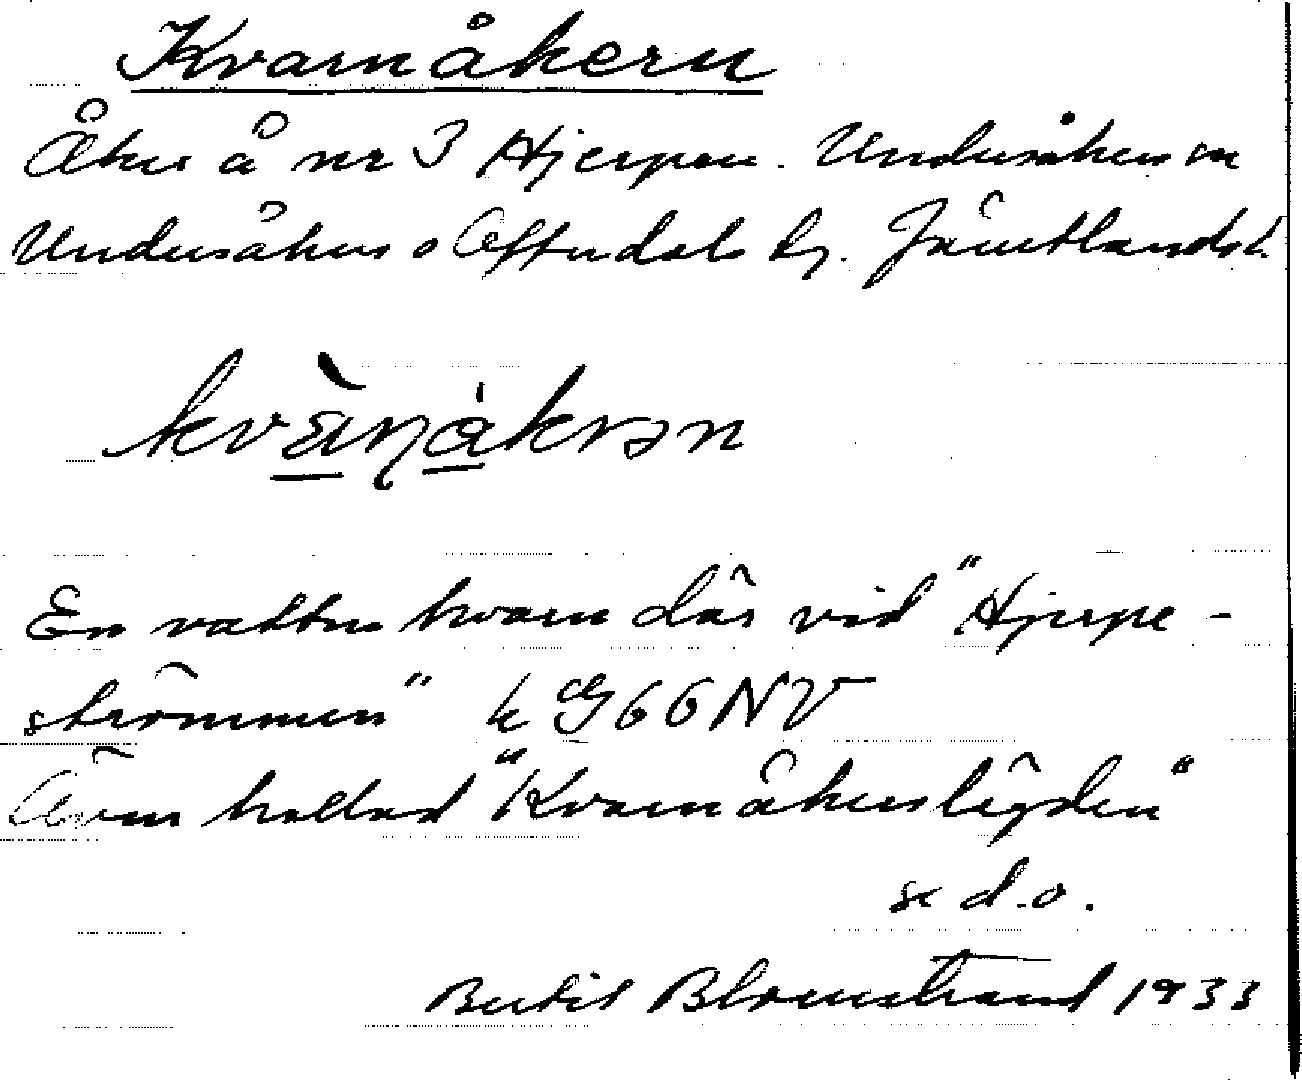 Kvarnåkern
Åker å nr 3 Hjerpen. Undersåkers sn
Undersåkers o Offerdals tg. Jämtlands l.
kvä̀ṇåkrən
En vatten kvarn där vid "Hjerpe-
strömmen" k G66NV
Även kallad "Kvarnåkerslägden"
se d.o.
Bertil Blomstrand 1933